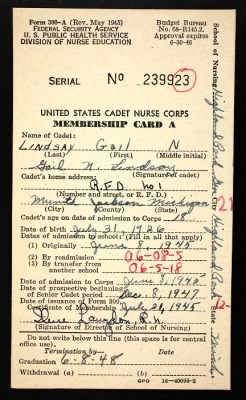 Form 300-A (Rev. May 1945)
FEDERAL SECURITY AGENCY
U. S. PUBLIC HEALTH SERVICE
DIVISION OF NURSE EDUCATION
Budget Bureau
No. 68-R145.2.
Approval expires
6-30-46
SERIAL No 239923
UNITED STATES CADET NURSE CORPS
MEMBERSHIP CARD A
Name of Cadet:
Lindsay Gail N
(Last) (First) (Middle initial)
Gail N. Lindsay
(Signature of cadet)
Cadet's home address:
R.F.D. no 1
(Number and street, or R. F. D.)
Munith Jackson Michigan
(City) (County) (State)
Cadet's age on date of admission to Corps 18
Date of birth July 31, 1926
Dates of admission to school: (Fill in all that apply)
(1) Originally June 8, 1945
(2) By readmission 06-08-5
(3) By transfer from another school 06-5-18
Date of admission to Corps June 8, 1945
Date of prospective beginning of Senior Cadet period Dec. 8, 1947
Date of issuance of Form 300 Certificate of Membership July 26, 1945
R.N.
(Signature of Director of School of Nursing)
Do not write below this line (this space for central office use).
Termination by— Date
Graduation 6-8-48
Withdrawal (a) (b)
GPO 16-40098-2
School of Nursing Highland Park
Highland Park
State Mich.
221
12-